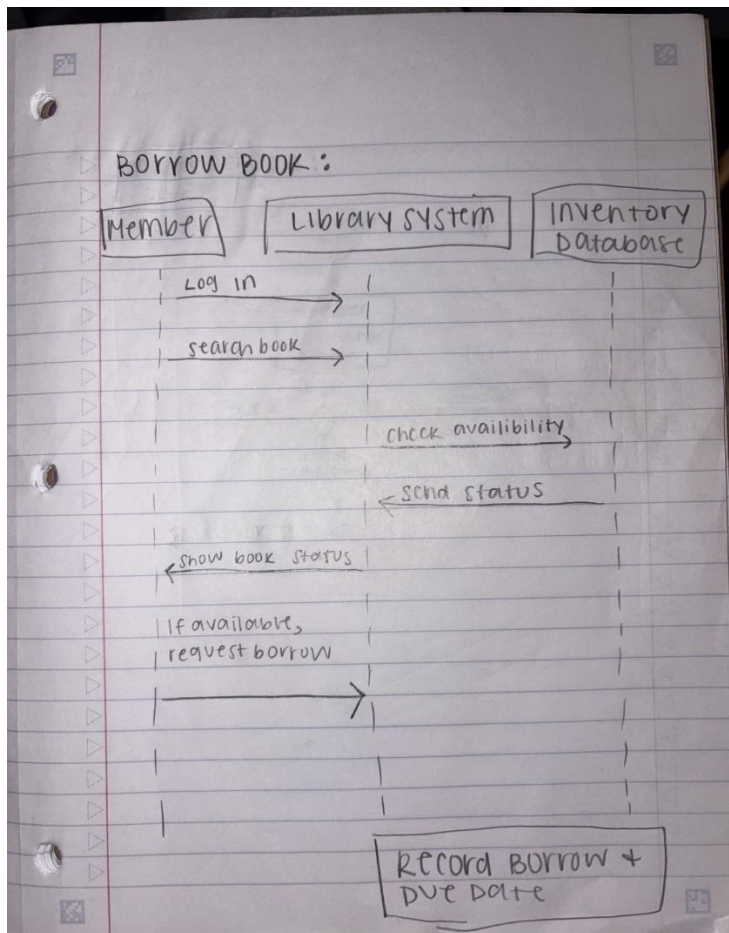 BORROW BOOK:
Member
Library System
Inventory
Database
Log in
search book
check availibility
send status
show book status
If available,
request borrow
Record Borrow +
Due Date